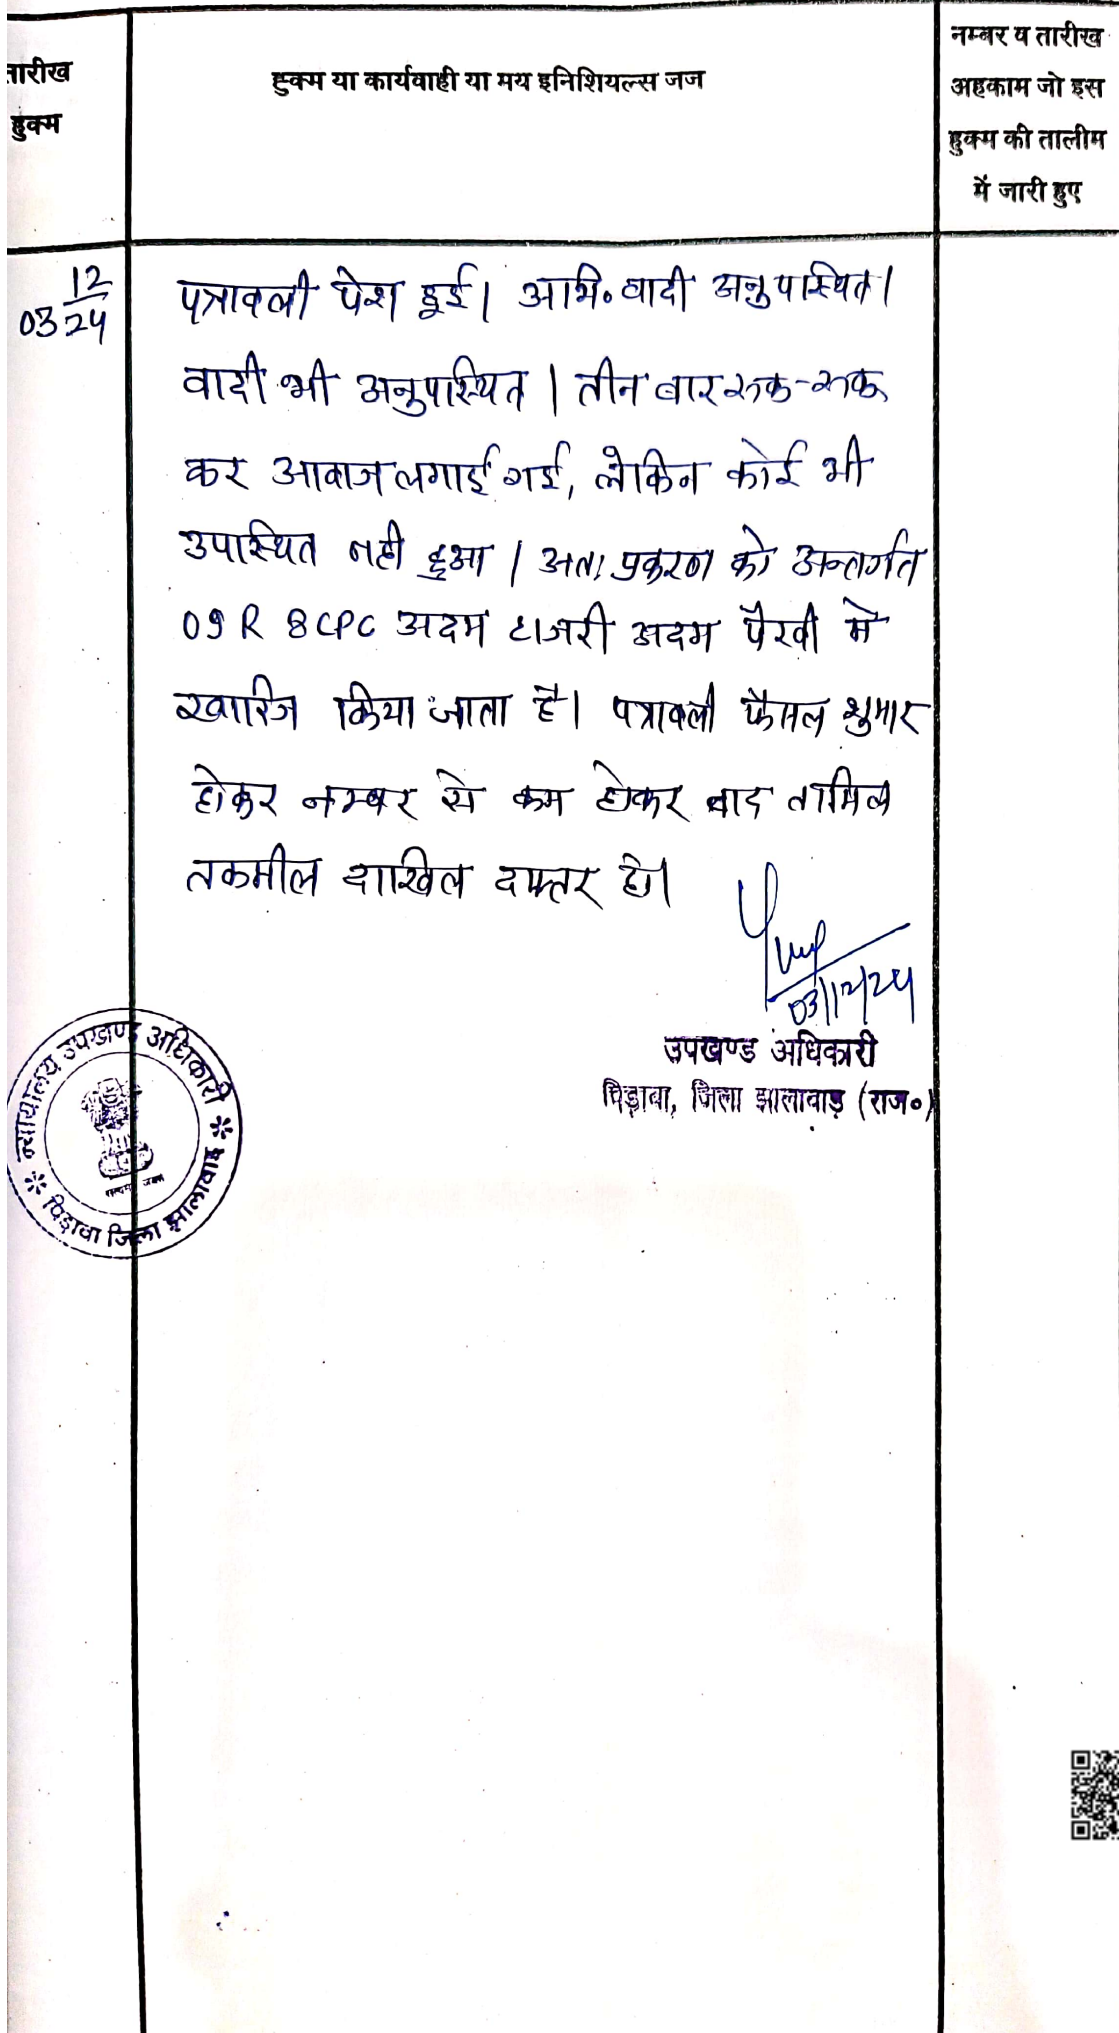 तारीख
हुक्म
हुक्म या कार्यवाही या मय इनिशियल्स जज
नम्बर व तारीख
अहकाम जो इस
हुक्म की तालीम
में जारी हुए
03 12/24
पत्रावली पेश हुई। अभि० वादी अनुपस्थित।
वादी भी अनुपस्थित। तीन बार रूक-रूक
कर आवाज लगाई गई, लेकिन कोई भी
उपस्थित नही हुआ। अतः प्रकरण को अन्तर्गत
09 R 8 CPC अदम हाजरी अदम पैरवी मे
खारिज किया जाता है। पत्रावली फैसल शुमार
होकर नम्बर से कम होकर बाद तामिल
तकमील दाखिल दफ्तर हो।
03/12/24
उपखण्ड अधिकारी
पिड़ावा, जिला झालावाड़ (राज०)
न्यायालय उपखण्ड अधिकारी
पिड़ावा जिला झालावाड़